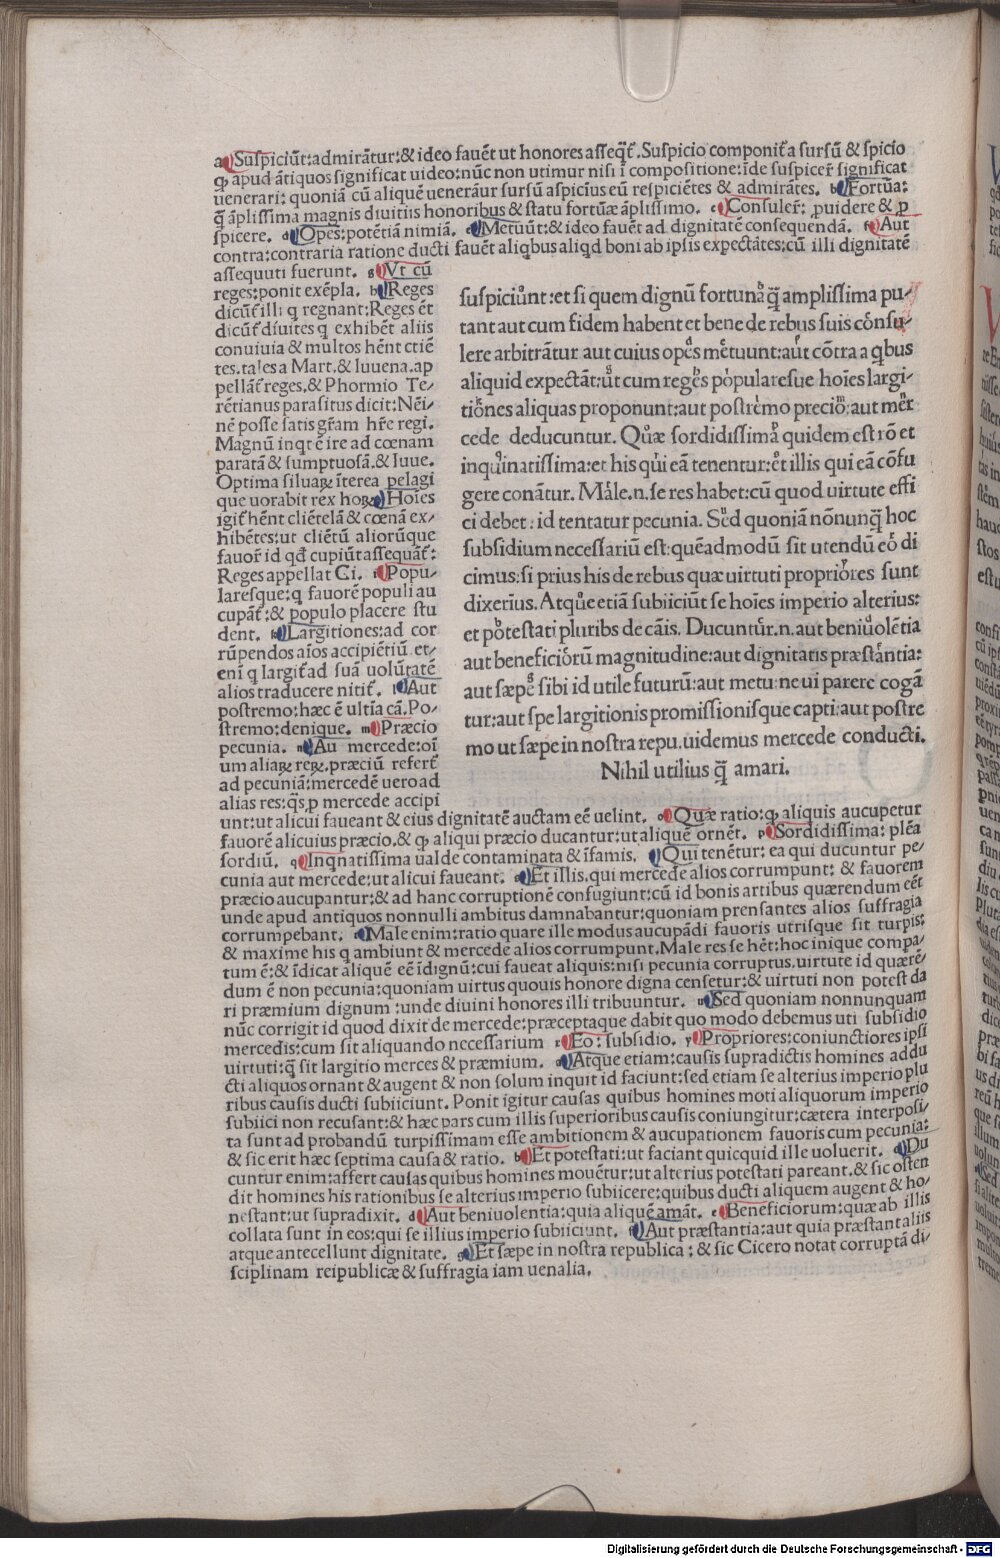 a Suſpiciūt:admirātur:& ideo fauēt ut honores aſſeq̄t̄. Suſpicio componit̄ a ſurſū & ſpicio
ꝙ apud ātiquos ſignificat uideo:nūc non utimur niſi ī compoſitione:īde ſuſpicer̄ ſignificat
uenerari: quoniā cū aliquē uenerāur ſurſū aſpiciūs eū reſpiciētes & admirātes. b Fortūa:
q̄ āpliſſima magnis diuitiis honoribus & ſtatu fortūæ āpliſſimo. c Conſuler̄: ꝓuidere & ꝑ
ſpicere. d Opes:potētiā nimiā. e Metuūt:& ideo fauēt ad dignitatē conſequendā. f Aut
contra:contraria ratione ducti fauēt aliqbus aliqd boni ab ipſis expectātes:cū illi dignitatē
aſſequuti fuerunt. g Vt cū
reges:ponit exēpla. h Reges
dicūt̄ illi q regnant:Reges ēt
dicūt̄ diuites q exhibēt aliis
conuiuia & multos hēnt ctiē
tes. tales a Mart. & Iuuena. ap
pellāt̄ reges. & Phormio Te/
rētianus paraſitus dicit: Nēi/
nē poſſe ſatis gr̄am hr̄e regi.
Magnū inqt ē ire ad cœnam
paratā & ſumptuoſā. & Iuue.
Optima ſiluaꝝ īterea pelagi
que uorabit rex hoꝝ Hoīes
igit̄ hēnt cliētelā & cœnā ex/
hibētes:ut cliētū aliorūque
fauor̄ id qd̄ cupiūt aſſequāt̄:
Reges appellat Ci. i Popu/
lareſque:q fauorē populi au
cupāt̄:& populo placere ſtu
dent. k Largitiones:ad cor
rūpendos aīos accipiētiū. et/
enī q largit̄ ad ſuā uolūtatē
alios traducere nitit̄. l Aut
poſtremo:hæc ē ultīa cā. Po/
ſtremo:denique. m Præcio
pecunia. n Au mercede:oī
um aliaꝝ reꝝ. præciū refert̄
ad pecuniā:mercedē uero ad
alias res:qs ꝑ mercede accipi
ſuſpiciūnt:et ſi quem dignū fortunā q̄ ampliſſima pu/
tant aut cum fidem habent et bene de rebus ſuis cōnſu/
lere arbitrātur aut cuius opes metuunt:aut cōtra a qbus
aliquid expectāt:ut cum reges populareſue hoīes largi/
tiōnes aliquas proponunt:aut poſtremo precio:aut mer
cede deducuntur. Quæ ſordidiſſima quidem eſt rō et
inquinatiſſima:et his qui eā tenentur:et illis qui ea cōfu
gere conātur. Male.n.ſe res habet:cū quod uirtute effi
ci debet: id tentatur pecunia. Sed quoniā nōnunq̄ hoc
ſubſidium neceſſariū eſt:quēadmodū ſit utendū eō di
cimus:ſi prius his de rebus quæ uirtuti propriores ſunt
dixerīus. Atque etiā ſubiiciūt ſe hoīes imperio alterius:
et poteſtati pluribs de cāis. Ducuntur.n.aut beniuolētia
aut beneficiorū magnitudine:aut dignitatis præſtantia:
aut ſæpe ſibi id utile futurū:aut metu:ne ui parere cogā
tur:aut ſpe largitionis promiſſioniſque capti:aut poſtre
mo ut ſæpe in noſtra repu. uidemus mercede conducti.
Nihil utilius q̄ amari.
unt:ut alicui faueant & eius dignitatē auctam eē uelint. o Quæ ratio:ꝙ aliquis aucupetur
fauorē alicuius præcio.& ꝙ aliqui præcio ducantur:ut aliquē ornēt. p Sordidiſſima: plēa
ſordiū. q Inqnatiſſima ualde contaminata & īfamis. Qui tenētur: ea qui ducuntur pe/
cunia aut mercede:ut alicui faueant. Et illis. qui mercede alios corrumpunt: & fauorem
præcio aucupantur:& ad hanc corruptionē confugiunt:cū id bonis artibus quærendum eēt
unde apud antiquos nonnulli ambitus damnabantur:quoniam prenſantes alios ſuffragia
corrumpebant. Male enim:ratio quare ille modus aucupādi fauoris utriſque ſit turpis:
& maxime his q ambiunt & mercede alios corrumpunt. Male res ſe hēt:hoc inique compa/
tum ē:& īdicat aliquē eē īdignū:cui faueat aliquis:niſi pecunia corruptus. uirtute id quærē/
dum ē non pecunia:quoniam uirtus quouis honore digna cenſetur:& uirtuti non poteſt da
ri præmium dignum :unde diuini honores illi tribuuntur. u Sed quoniam nonnunquam
nūc corrigit id quod dixit de mercede:præceptaque dabit quo modo debemus uti ſubſidio
mercedis:cum ſit aliquando neceſſarium x Eo: ſubſidio. y Propriores:coniunctiores ipſi
uirtuti:q̄ ſit largitio merces & præmium. a Atque etiam:cauſis ſupradictis homines addu
cti aliquos ornant & augent & non ſolum inquit id faciunt:ſed etiam ſe alterius imperio plu
ribus cauſis ducti ſubiiciunt. Ponit igitur cauſas quibus homines moti aliquorum imperio
ſubiici non recuſant:& hæc pars cum illis ſuperioribus cauſis coniungitur:cætera interpoſi/
ta ſunt ad probandū turpiſſimam eſſe ambitionem & aucupationem fauoris cum pecunia:
& ſic erit hæc ſeptima cauſa & ratio. b Et poteſtati:ut faciant quicquid ille uoluerit. Du
cuntur enim:affert cauſas quibus homines mouētur:ut alterius poteſtati pareant.& ſic oſten
dit homines his rationibus ſe alterius imperio ſubiicere:quibus ducti aliquem augent & ho/
neſtant:ut ſupradixit. d Aut beniuolentia:quia aliquē amāt. e Beneficiorum:quæ ab illis
collata ſunt in eos:qui ſe illius imperio ſubiiciunt. f Aut præſtantia:aut quia præſtant aliis
atque antecellunt dignitate. g Et ſæpe in noſtra republica: & ſic Cicero notat corruptā di/
ſciplinam reipublicæ & ſuffragia iam uenalia.
Digitalisierung gefördert durch die Deutsche Forschungsgemeinschaft - DFG